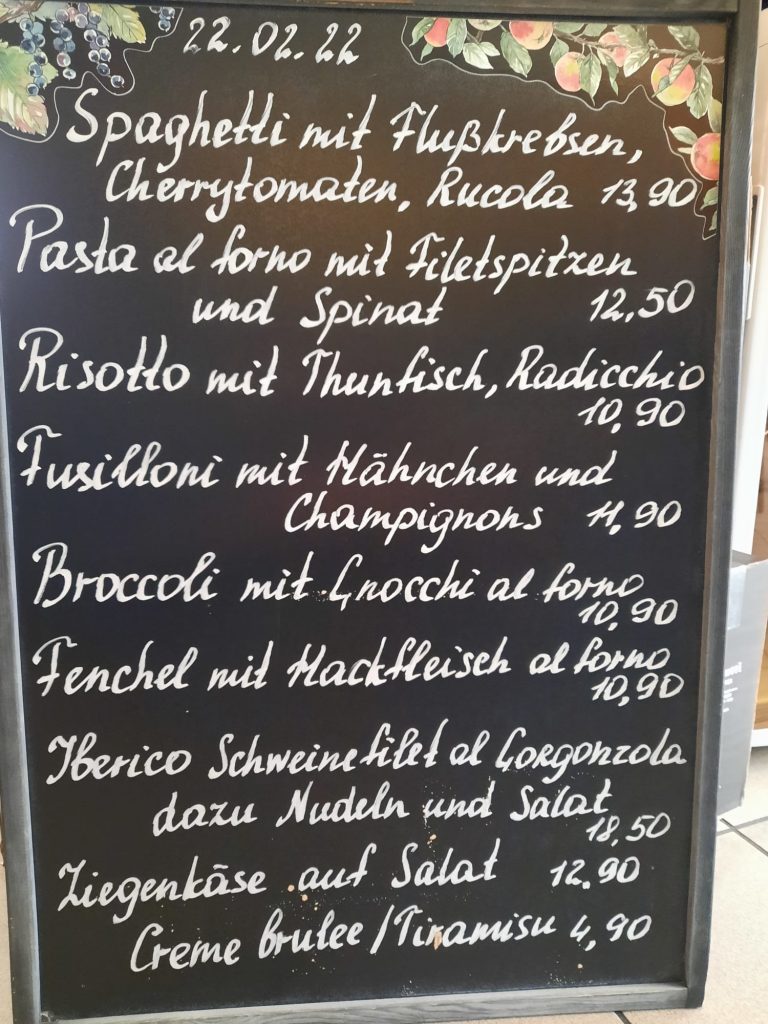 22.02.22
Spaghetti mit Flußkrebsen,
Cherrytomaten, Rucola 13,90
Pasta al forno mit Filetspitzen
und Spinat 12,50
Risotto mit Thunfisch, Radicchio
10,90
Fusilloni mit Hähnchen und
Champignons 11,90
Broccoli mit Gnocchi al forno
10,90
Fenchel mit Hackfleisch al forno
10,90
Iberico Schweinefilet al Gorgonzola
dazu Nudeln und Salat
18,50
Ziegenkäse auf Salat 12.90
Creme brulee/Tiramisu 4,90